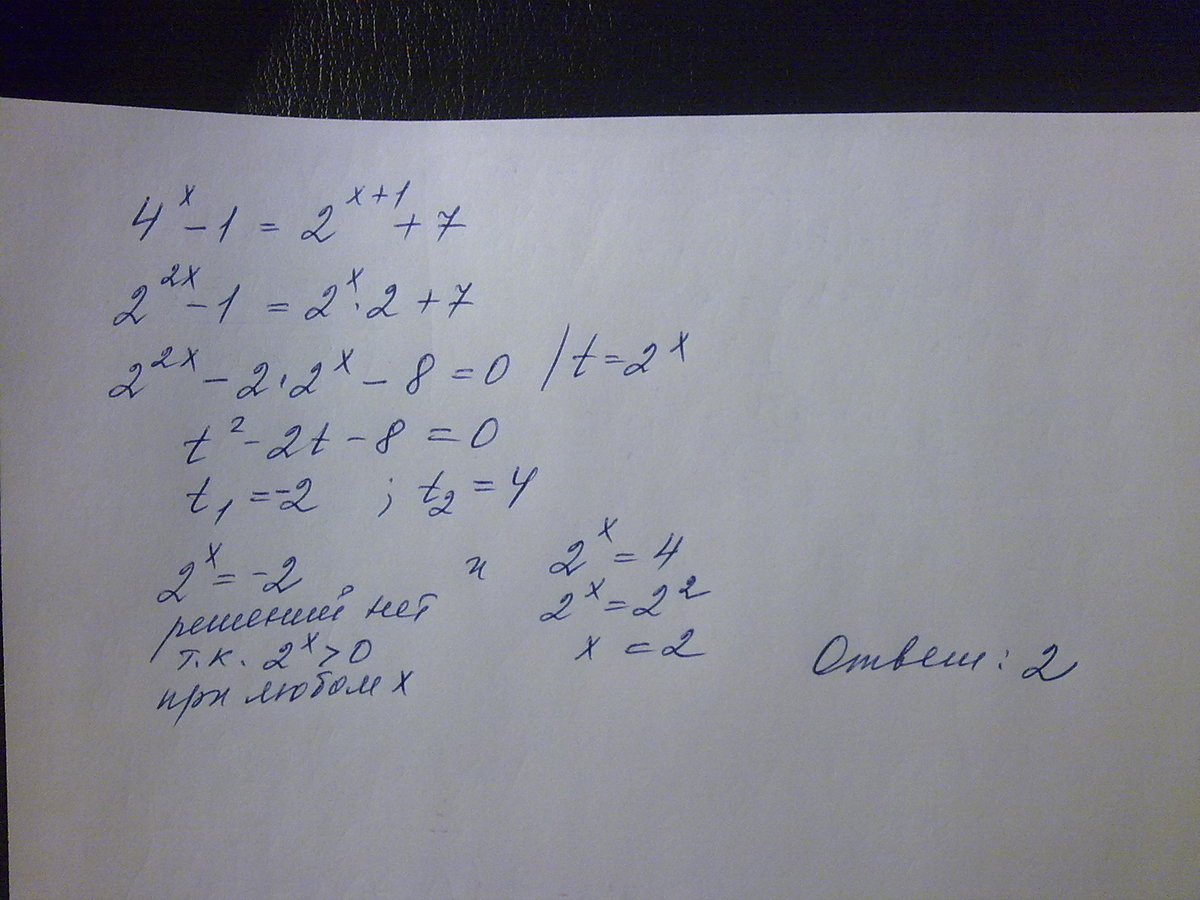 4^x - 1 = 2^{x+1} + 7
2^{2x} - 1 = 2^x · 2 + 7
2^{2x} - 2 · 2^x - 8 = 0 / t = 2^x
t^2 - 2t - 8 = 0
t_1 = -2 ; t_2 = 4
2^x = -2 и 2^x = 4
решений нет 2^x = 2^2
т.к. 2^x > 0 x = 2 Ответ: 2
при любом x